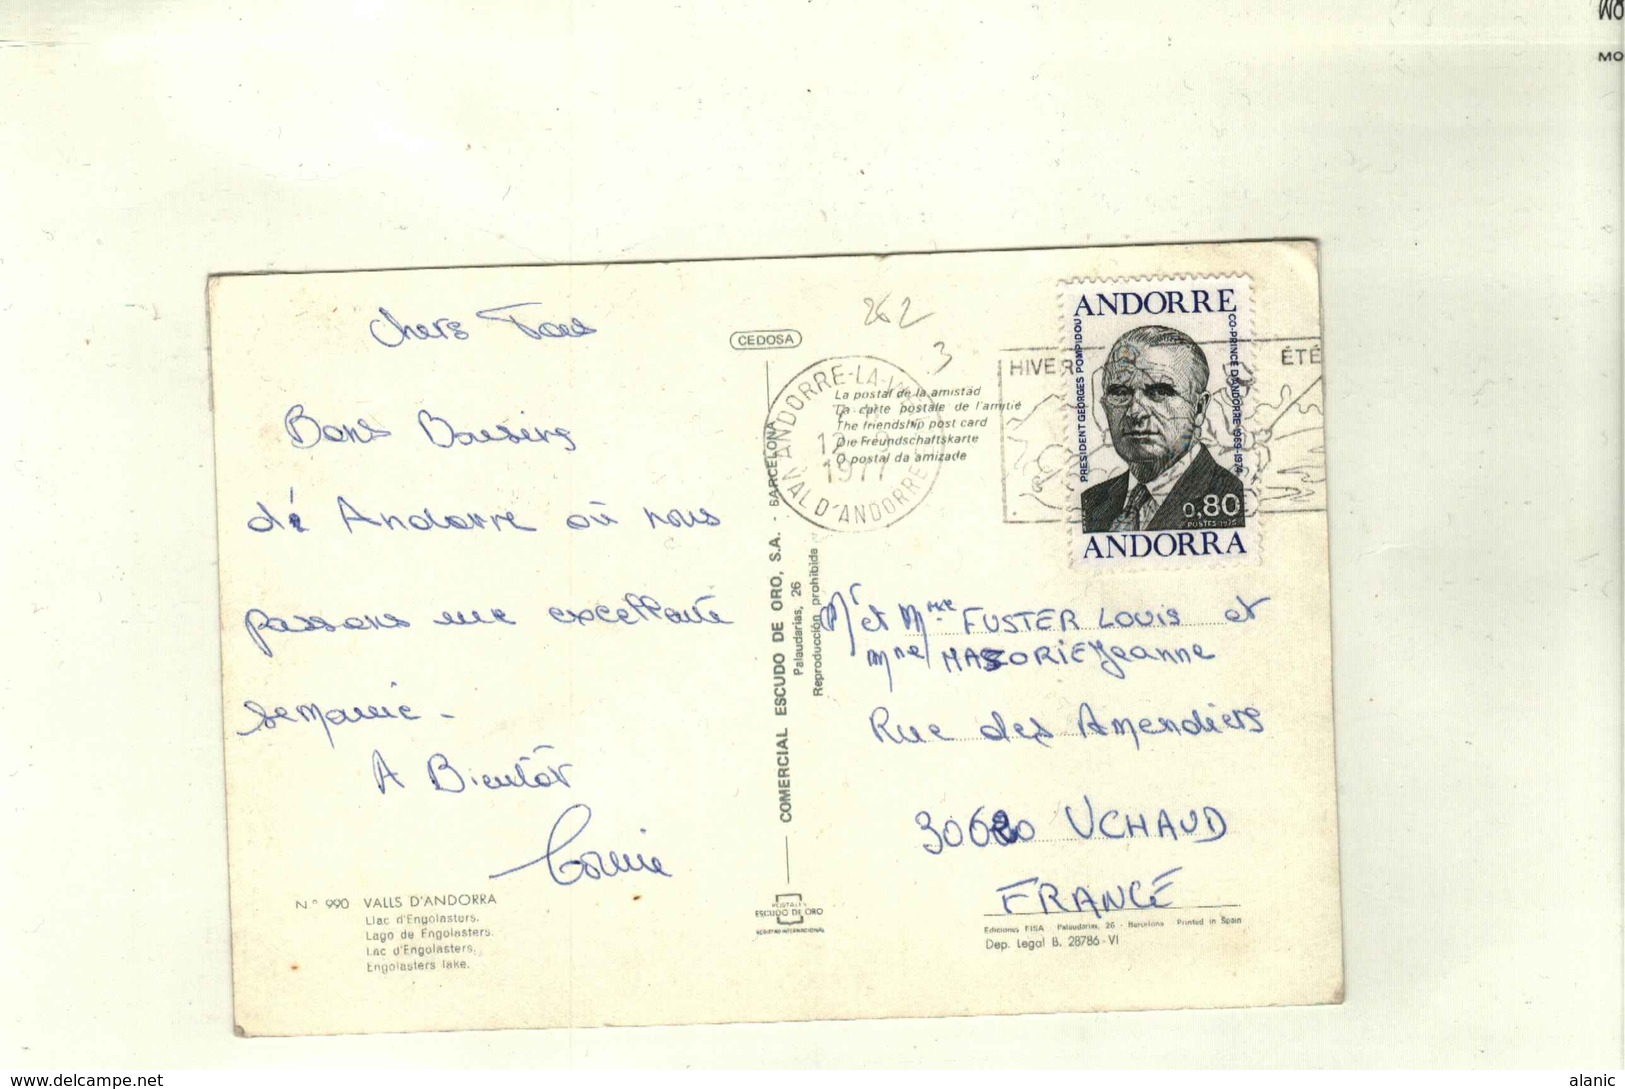 WO
MO
Chers Tous
Bons Baisers
de Andorre où nous
passons une excellente
semaine -
A Bientôt
N° 990 VALLS D'ANDORRA
Llac d'Engolasters.
Lago de Engolasters.
Lac d'Engolasters.
Engolasters lake.
CEDOSA
COMERCIAL ESCUDO DE ORO, S.A. - BARCELONA
Palaudarias, 26
Reproducción prohibida
POSTALES
ESCUDO DE ORO
REGISTRO INTERNACIONAL
262
3
ANDORRE-LA-V
1977
VAL D'ANDORRE
La postal de la amistad
La carte postale de l'amitié
The friendship post card
Die Freundschaftskarte
O postal da amizade
HIVER
ÉTÉ
ANDORRE
PRESIDENT GEORGES POMPIDOU
CO-PRINCE D'ANDORRE 1969-1974
0,80
POSTES 1975
ANDORRA
Mr et Mme FUSTER LOUIS et
Mme Jeanne
Rue des Amendiers
30620 UCHAUD
FRANCE
Ediciones FISA Palaudarias, 26 - Barcelona Printed in Spain
Dep. Legal B. 28786-VI
delcampe.net
alanic